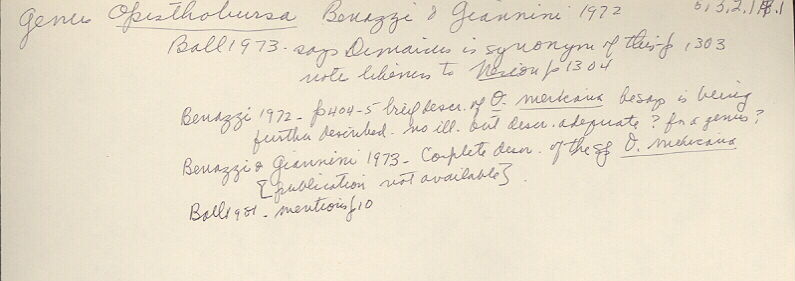 genus Opisthobursa Benazzi & Giannini 1972 5,3,2,1
Ball 1973 - says Dimarcus is synonym of this - p 1303
note likeness to p 1304
Benazzi 1972 - p 404-5 brief descr. of O. mexicana he says is being
further described. no ill. but descr. adequate? for a genus?
Benazzi & Giannini 1973 - Complete descr. of the sp O. mexicana
[publication not available].
Ball 1981 - mentions p 10